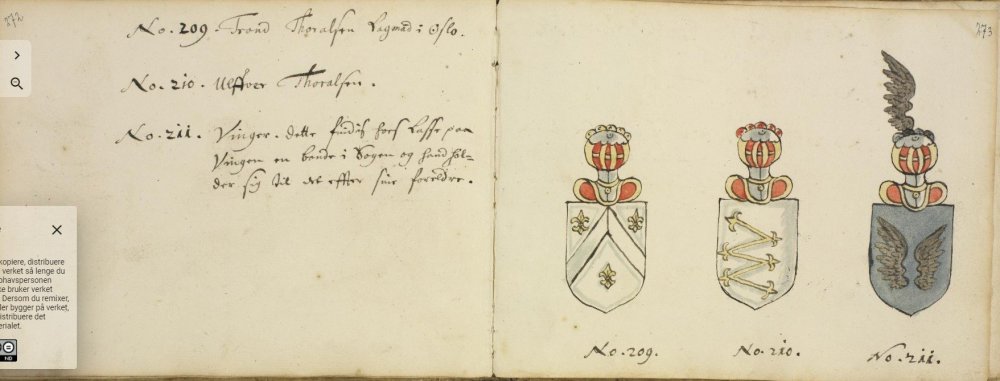 272
No. 209. Trond Thoralsen Lagmād i Oslo.
No. 210. Ulffver Thoralsen.
No. 211. Vinger. dette findis hoes Lasse paa
Vingen en bonde i Sogen og hand hol=
der sig til det effter sine foreldre.
273
No. 209.
No. 210.
No. 211.
kopiere, distribuere
verket så lenge du
phavspersonen
ke bruker verket
Dersom du remixer,
ler bygger på verket,
distribuere det
erialet.
ND